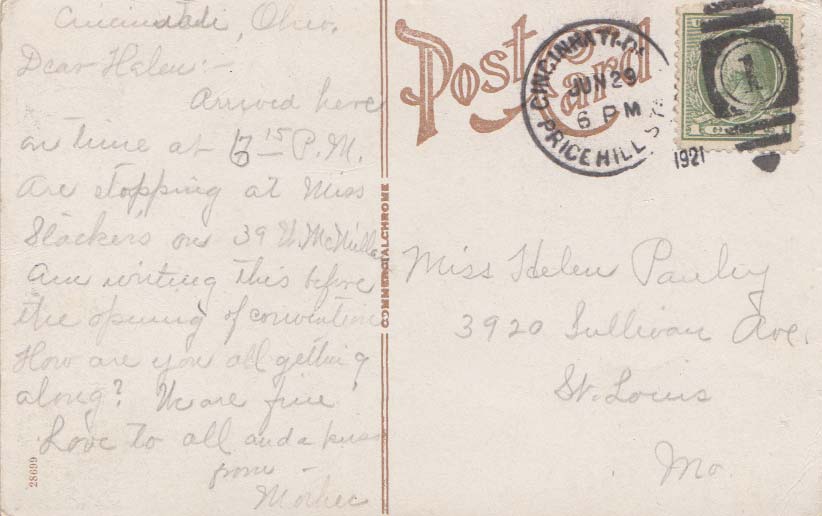 Cincinnati, Ohio.
Dear Helen:-
Arrived here
on time at 6 15 P.M.
Are stopping at Miss
Stackers on 39 W. McMillan
Am writing this before
the opening of convention
How are you all getting
along? We are fine
Love to all and a kiss
from -
Mother
28699
COMMERCIALCHROME
Post Card
CINCINNATI, O.
JUN 29
6 PM
PRICE HILL STA.
1921
1
Miss Helen Pauly
3920 Sullivan Ave.
St. Louis
Mo